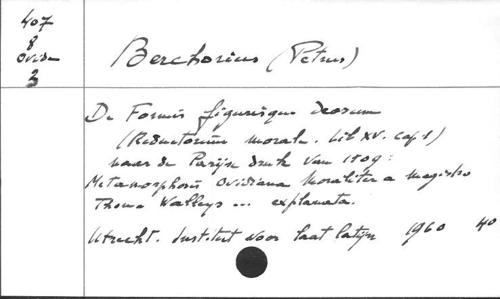 407
8
Ovidu
3
Berchorius (Petrus)
De Formis figurisque deorum
(Reductorium morale. Lib XV. cap 1)
naar de Parijse druk van 1509:
Metamorphosis Ovidiana moraliter a magistro
Thoma Walleys ... explanata.
Utrecht. Instituut voor laat latijn 1960 40